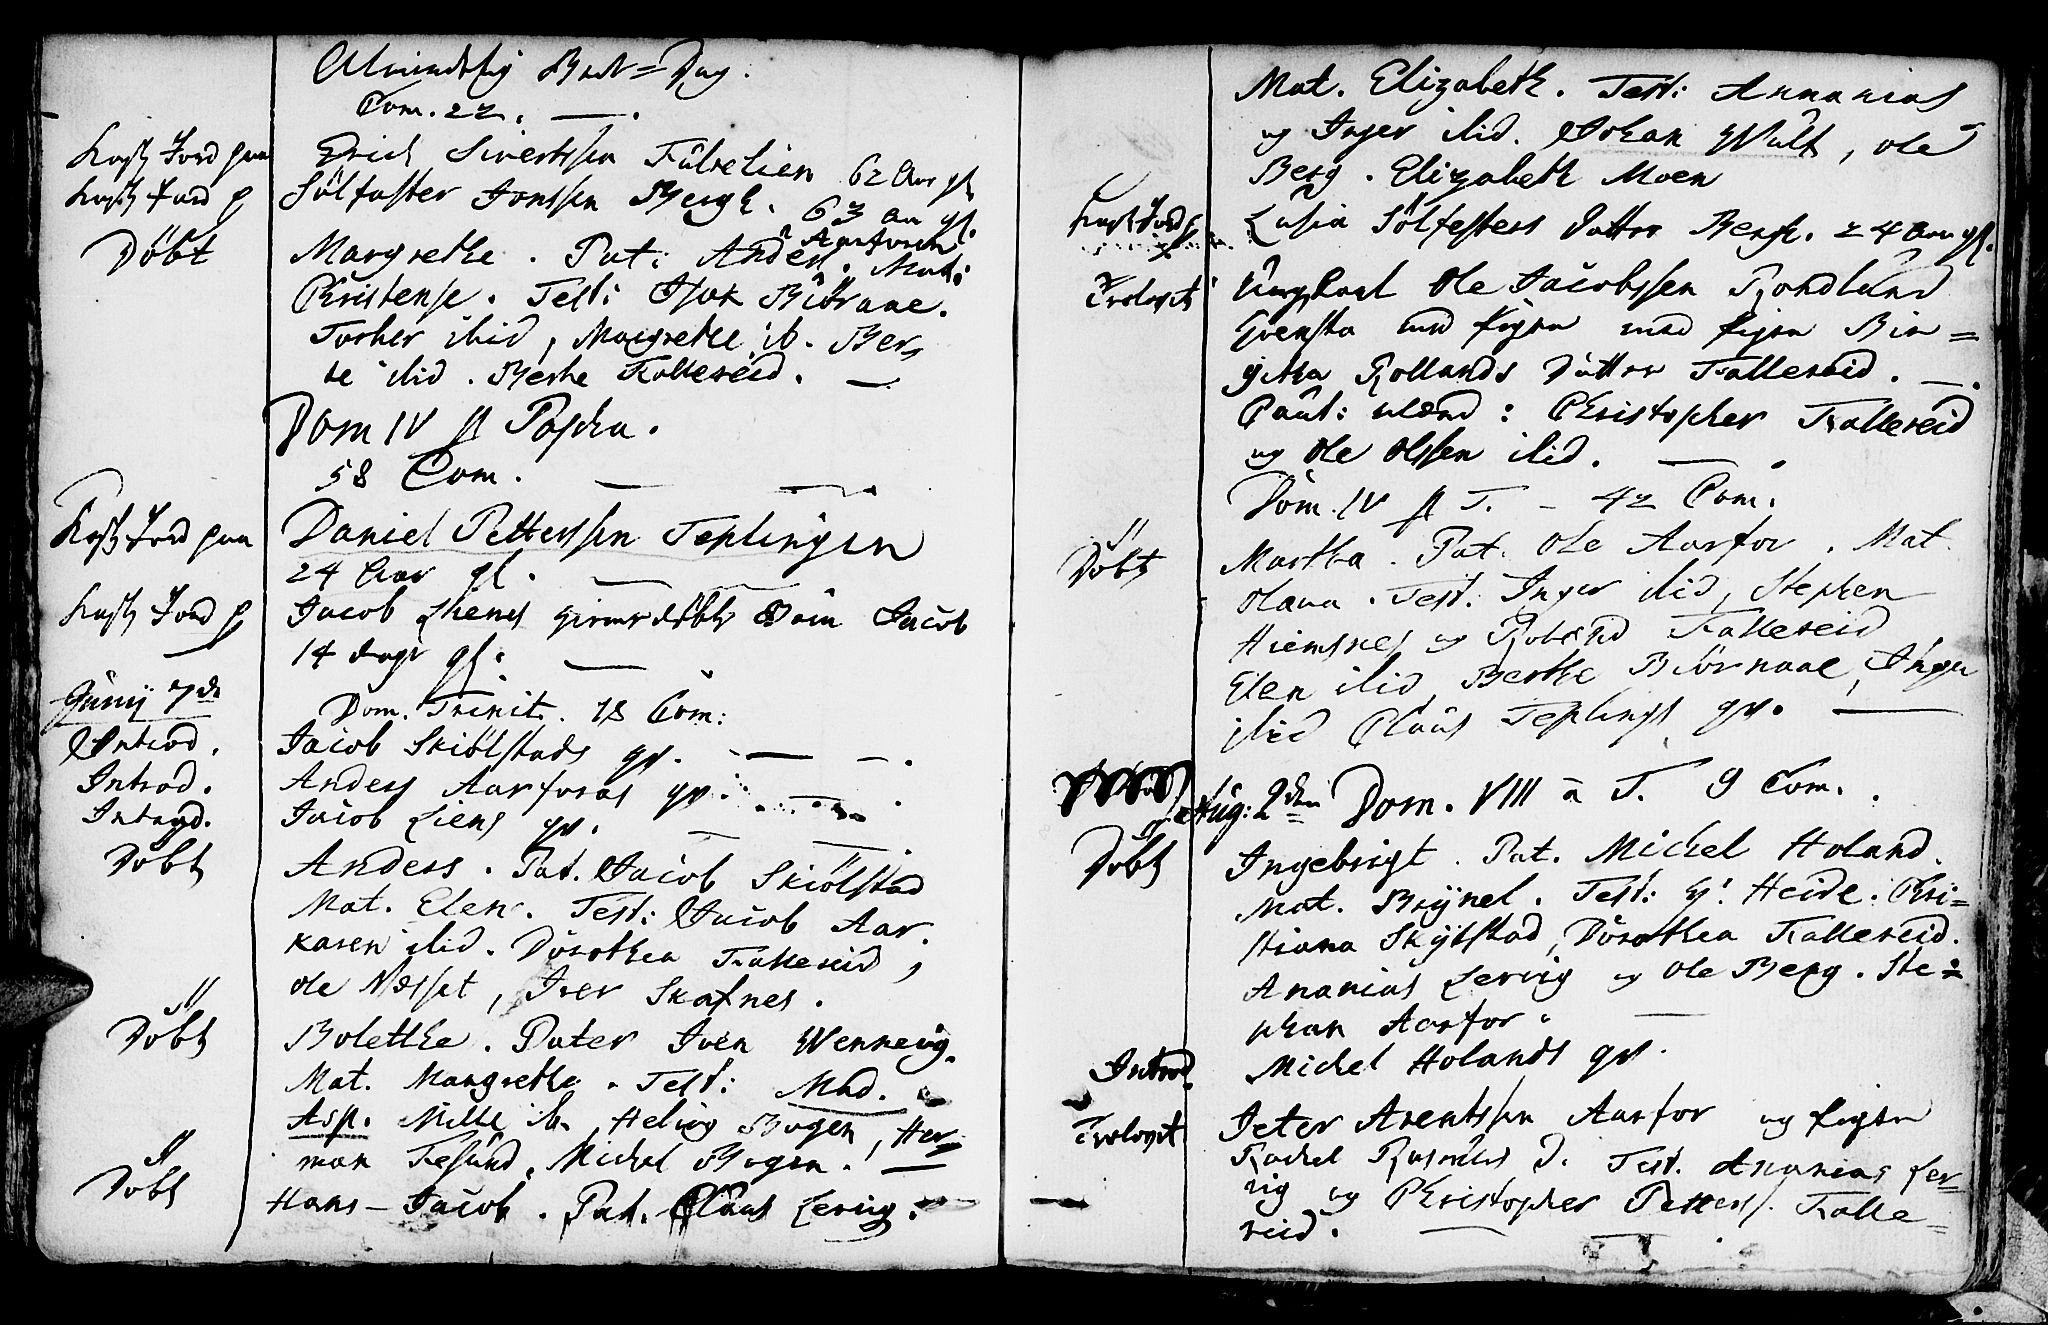 Almindelig Bede=Dag.
Com. 22. —.
Kast Jord paa Erich Sivertsen 62 Aar gl.
Kast Jord p Sölfaster Jonssen Bergh. 63 aar gl.
Döbt Margrethe. Pat: Anders Aarforen. Mat:
Christense. Test: Isak Biörnaae.
Torber ibid, Margrethe ib. Ber
te ibid. Berhe Kallereid. —
Dom IV p Pascha.
58 Com. —
Kast Jord paa Daniel Petterssen Teplingen
24 Aar gl. —
Kast Jord p Jacob hiemedöbte Sön Jacob
14 dage gl. —
Junij 7de Dom. Trinit. 18 Com:
Introd. Jacob Skiölstads qv. — —.
Introd. Anders Aarforas qv.
Introd. Jacob Liens qv. —
Döbt Anders. Pat. Jacob Skiölstad
Mat. Elen. Test: Jacob Aar.
Karen ibid. Dorothea Kallereid,
Ole Næsset, Iver Skafnes.
Döbt Bolethe. Pater Iven Wennevig.
Mat. Margrethe. Test: Mad.
Asp. Mille ib., Helvig Bogen, Her
man Fesund, Michel Bogen. —
Döbt Hans-Jacob. Pat. Claus Lervig.
Mat. Elizabeth. Test: Annanias
og Inger ibid. Johan Wult, Ole
Berg. Elizabeth Moen
Kast Jord p Lusia Sölfesters Datter Bergh. 24 Aar gl.
Trolovet Ungkarl Ole Jacobssen
med Pigen med Pigen Bir=
githa Rollands Datter Kallereid. —.
Caut: mænd: Christopher Kallereid
og Ole Olssen ibid. —.
Dom. IV p T. - 42 Com.
Döbt Martha. Pat. Ole Aarfor. Mat.
Olava. Test. Inger ibid, Stephen
Hiemsnes og Kallereid
Elen ibid, Berthe Biörnaae, Inger
ibid Claus Teplings qv. —
Aug: 2den Dom. VIII a T. 9 Com.
Döbt Ingebrigt. Pat. Michel Holand.
Mat. Brynel. Test: Hr. Heide. Chri=
stiana Skylstad, Dorothea Kallereid.
Ananias Lervig og Ole Berg. Ste=
phan Aarfor. —
Introd. Michel Holands qv.
Trolovet Peter Arentssen Aarfor og Pigen
Rachel Rasmus D. Test. Ananias Ler=
vig og Christopher Petters. Kalle=
reid. —